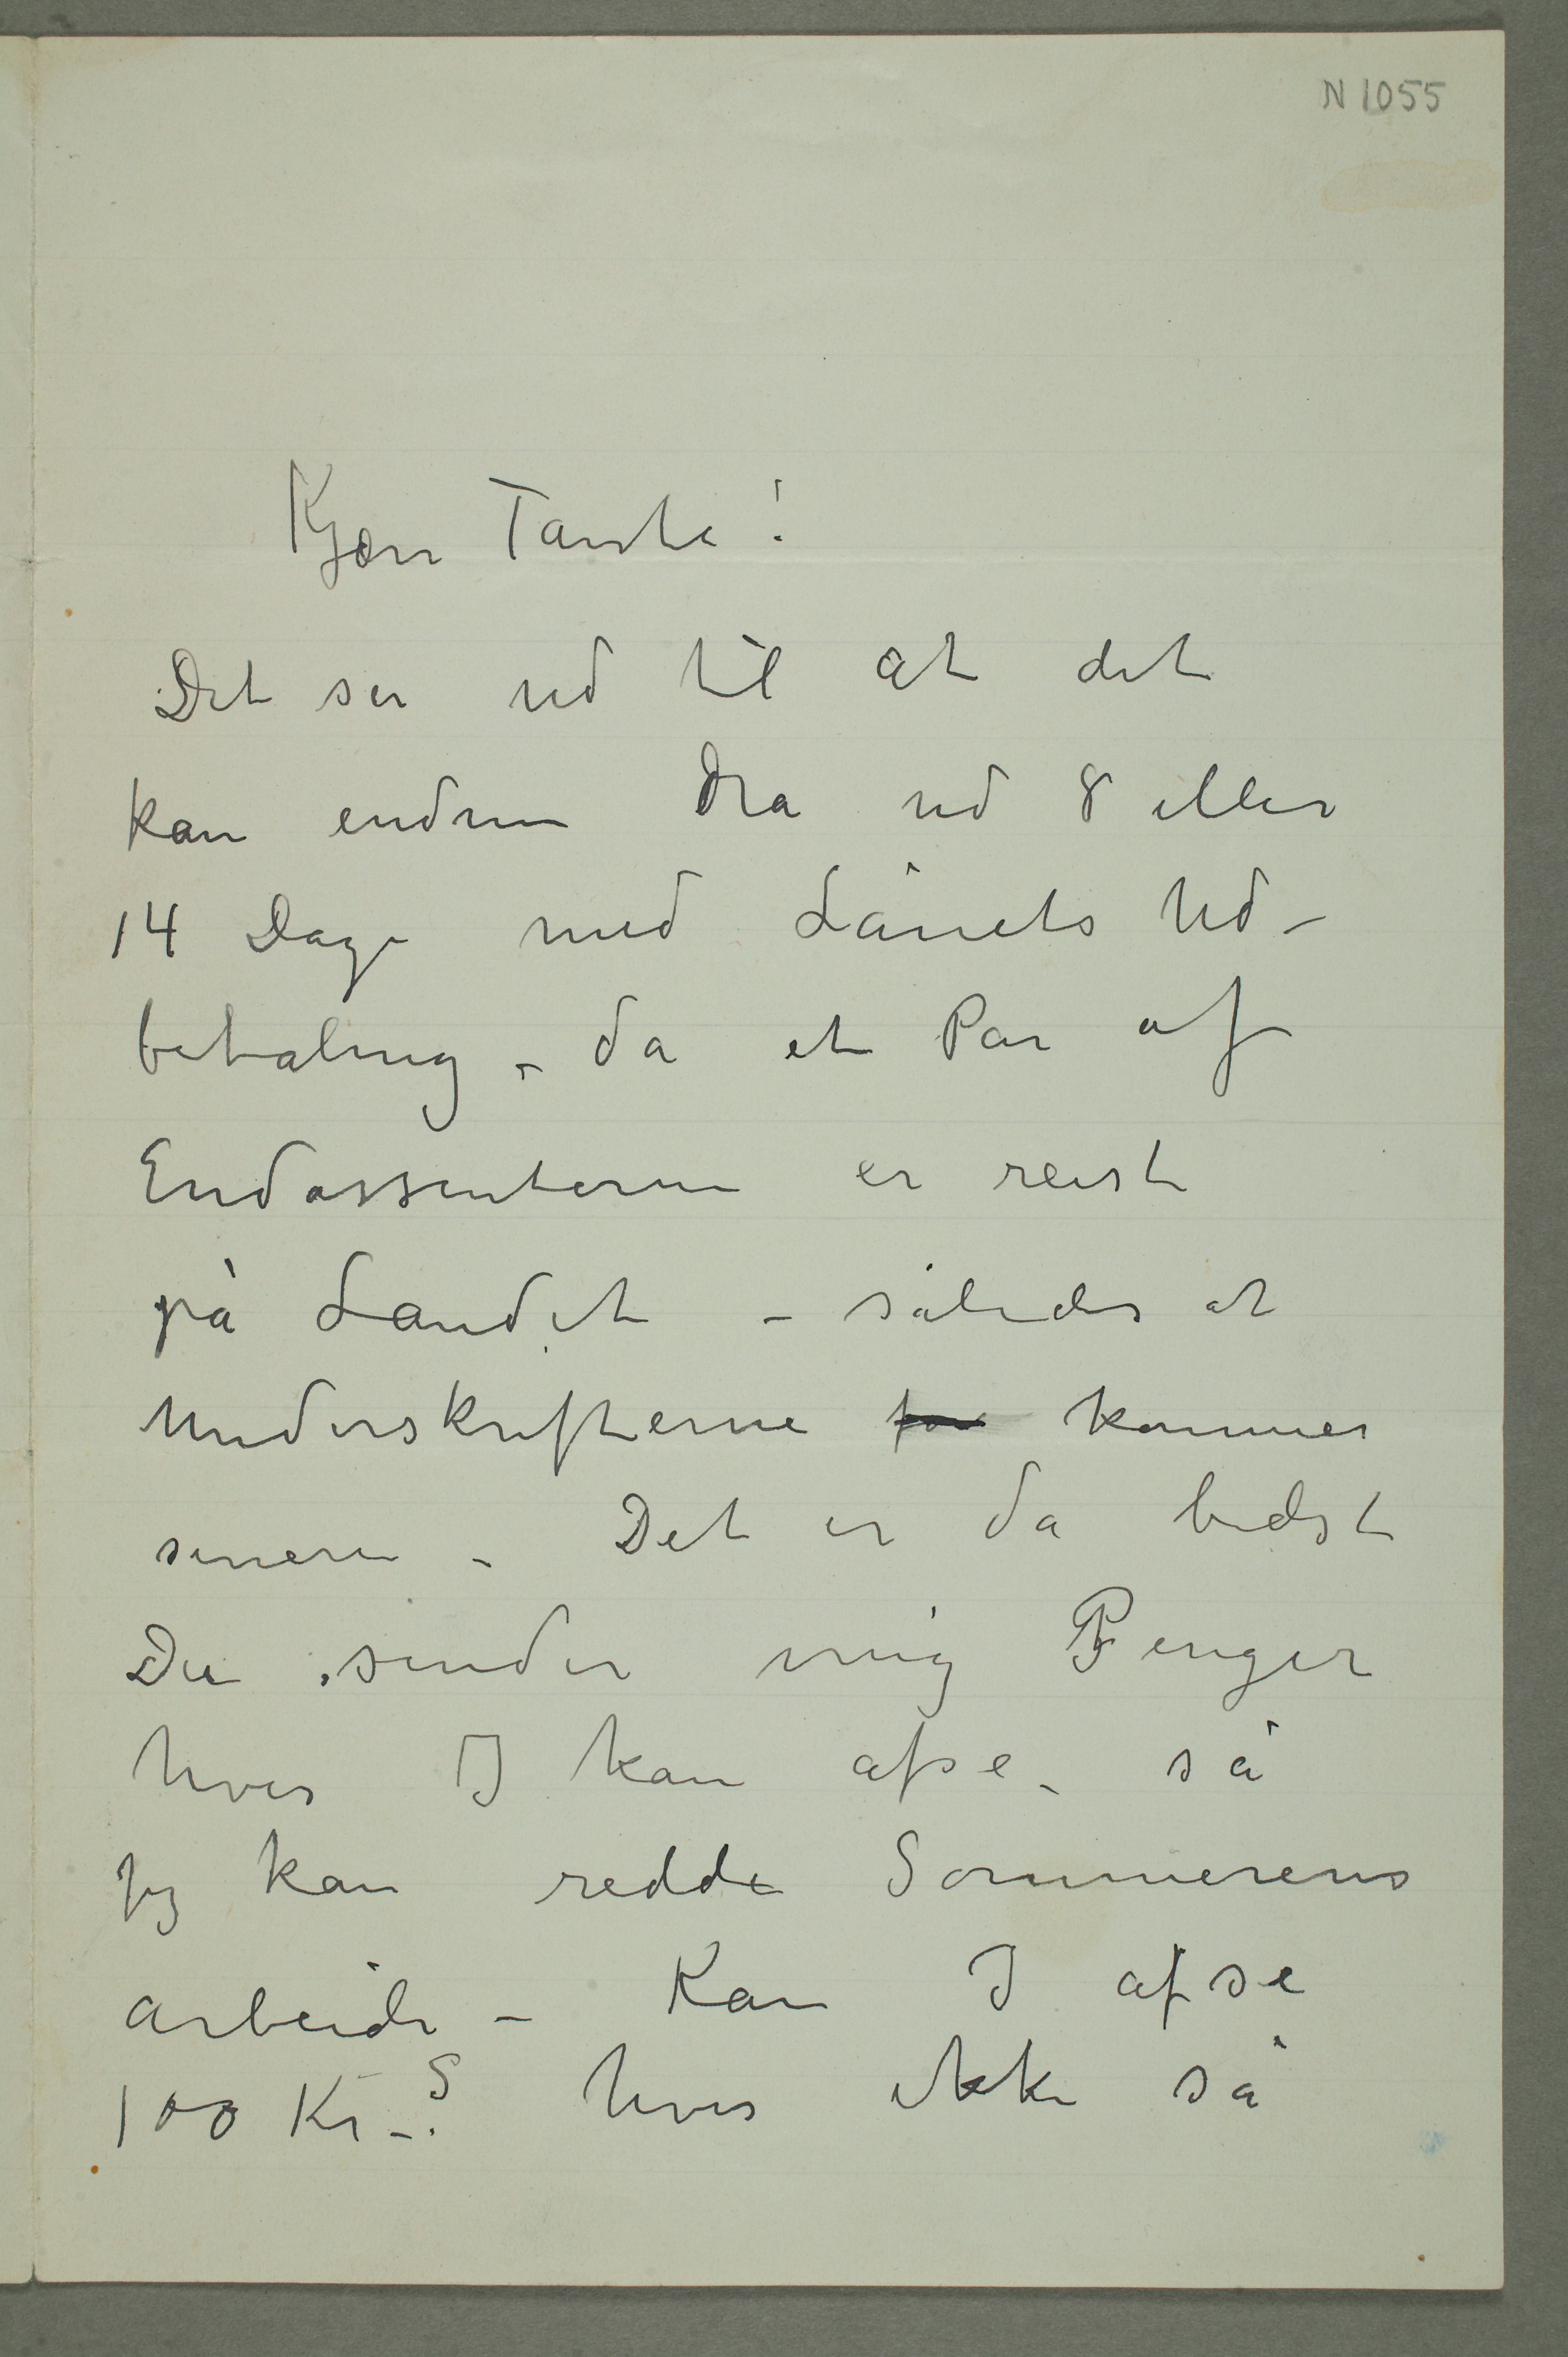 N 1055
Kjære Tante!
Det ser ud til at det
kan endnu dra ud 8 eller
14 Dage med Lånets Ud-
betaling – da et Par af
Endossenterne er reist
på Landet – således at
Underskrifterne for kommer
senere – Det er da bedst
Du sender mig Penger
hvis I kan afse – så
jeg kan redde Sommerens
arbeide – Kan I afse
100 Kr –? hvis ikke så